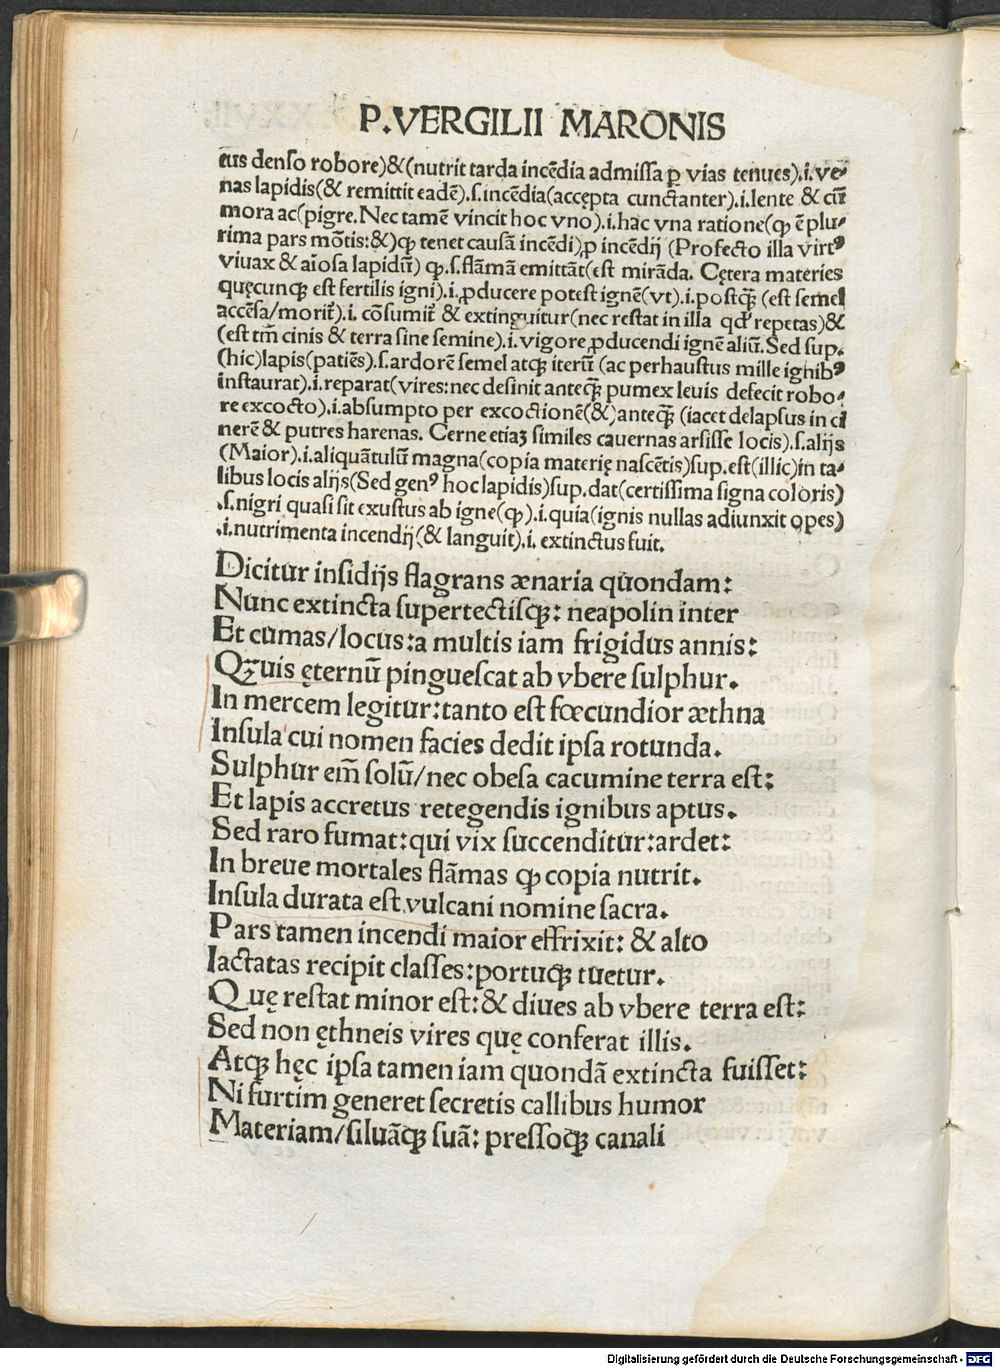 P.VERGILII MARONIS
eus denso robore)&(nutrit tarda incēdia admissa ꝑ vias tenues).i.ve⸗
nas lapidis(& remittit eadē).s.incēdia(accępta cunctanter).i.lente & cū
mora ac(pigre.Nec tamē vincit hoc vno).i.hac vna ratione(ꝙ ē plu⸗
rima pars mōtis:&)ꝙ tenet causā incēdi)ꝓ incēdij (Profecto illa virtꝰ
viuax & aīosa lapidū) ꝙ.s.flāmā emittāt(est mirāda. Cętera materies
quęcunqꝫ est fertilis igni).i.ꝓducere potest ignē(vt).i.postqꝫ̄ (est semel
accēsa/morit̄).i. cōsumit̄ & extinguitur(nec restat in illa qđ repetas)&
(est tm̄ cinis & terra sine semine).i.vigore ꝓducendi ignē aliū.Sed sup.
(hic)lapis(patiēs).s.ardorē semel atqꝫ iterū (ac perhaustus mille ignibꝰ
instaurat).i.reparat(vires:nec desinit anteqꝫ̄ pumex leuis defecit robo⸗
re excocto).i.absumpto per excoctionē(&)anteqꝫ̄ (iacet delapsus in ci
nerē & putres harenas. Cerne etiaꝫ similes cauernas arsisse locis).s.alijs
(Maior).i.aliquātulū magna(copia materię nascētis)sup.est(illic)in ta⸗
libus locis alijs(Sed genꝰ hoc lapidis)sup.dat(certissima signa coloris)
.s.nigri quasi sit exustus ab igne(ꝙ).i.quia(ignis nullas adiunxit opes)
.i.nutrimenta incendij(& languit).i. extinctus fuit.
Dicitur insidijs flagrans ænaria quondam:
Nunc extincta supertectisqꝫ: neapolin inter
Et cumas/locus:a multis iam frigidus annis:
Qꝫuis ęternū pinguescat ab vbere sulphur.
In mercem legitur:tanto est fœcundior æthna
Insula cui nomen facies dedit ipsa rotunda.
Sulphur em̄ solū/nec obesa cacumine terra est:
Et lapis accretus retegendis ignibus aptus.
Sed raro fumat:qui vix succenditur:ardet:
In breue mortales flāmas ꝙ copia nutrit.
Insula durata est vulcani nomine sacra.
Pars tamen incendi maior effrixit: & alto
Iactatas recipit classes:portuqꝫ tuetur.
Quę restat minor est:& diues ab vbere terra est:
Sed non ęthneis vires quę conferat illis.
Atqꝫ hęc ipsa tamen iam quondā extincta fuisset:
Ni furtim generet secretis callibus humor
Materiam/siluāqꝫ suā: pressoqꝫ canali
Digitalisierung gefördert durch die Deutsche Forschungsgemeinschaft - DFG